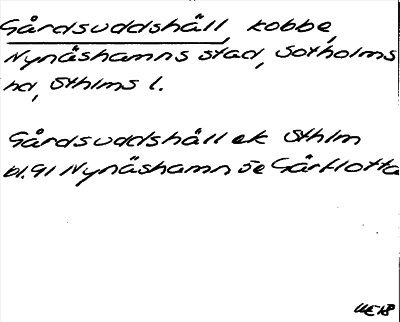 Gårdsuddshäll, kobbe,
Nynäshamns stad, Sotholms
hd, Sthlms l.
Gårdsuddshäll ek Sthlm
bl. 91 Nynäshamn 5e Gårflotta